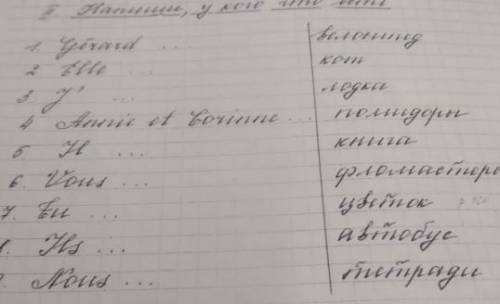 II Напиши, у кого что есть
1. Gérard ... велосипед
2 Elle ... кот
3. J' ... лодка
4 Annie et Corinne ... помидоры
5. Il ... книга
6. Vous ... фломастеры
7. Tu ... цветок
8. Ils ... автобус
9. Nous ... тетради